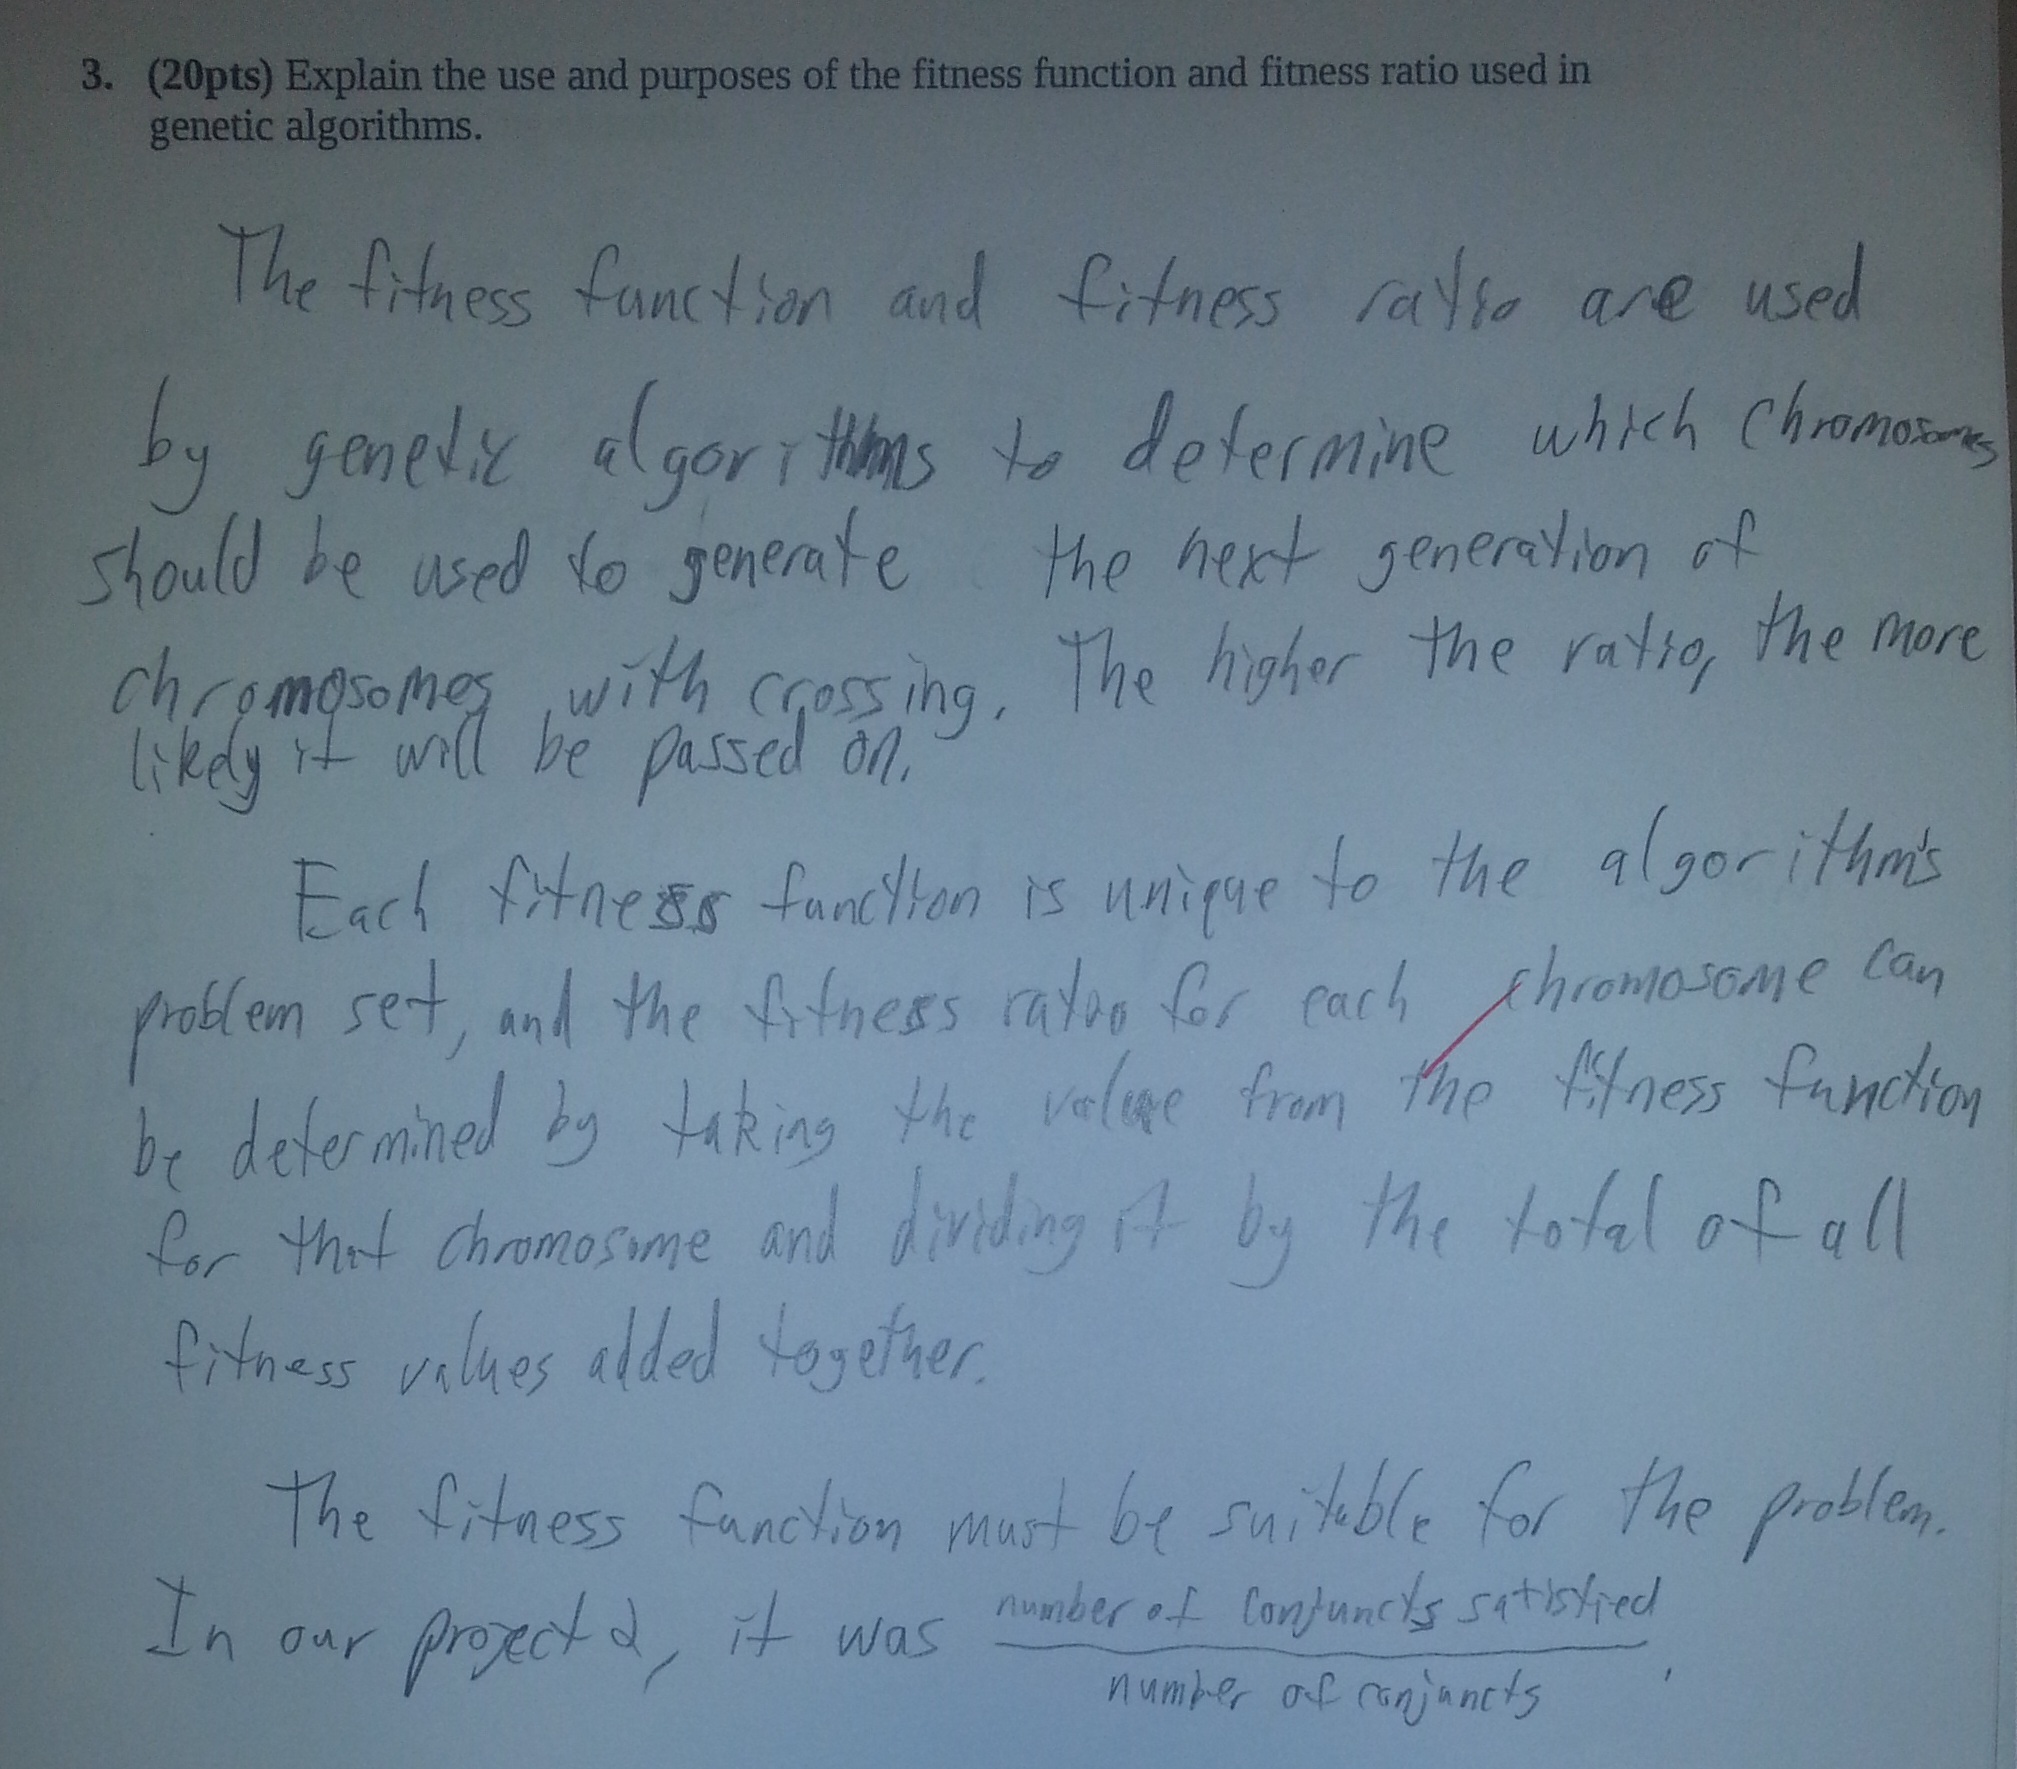 3. (20pts) Explain the use and purposes of the fitness function and fitness ratio used in
genetic algorithms.
The fitness function and fitness ratio are used
by genetic algorithms to determine which chromosomes
should be used to generate the next generation of
chromosomes with crossing. The higher the ratio, the more
likely it will be passed on.
Each fitness function is unique to the algorithm's
problem set, and the fitness ratio for each chromosome can
be determined by taking the value from the fitness function
for that chromosome and dividing it by the total of all
fitness values added together.
The fitness function must be suitable for the problem.
In our project 2, it was number of conjuncts satisfied
number of conjuncts.